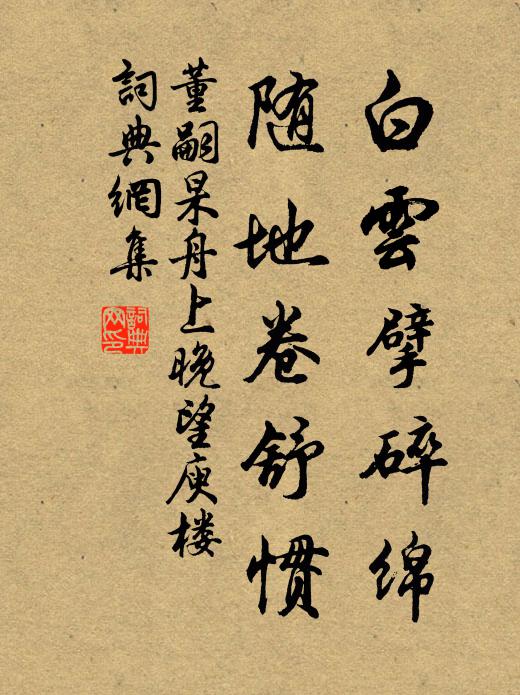 白雲擘碎綿
随地卷舒慣
董嗣杲舟上晚望庾楼
詞典網集
詞典网印